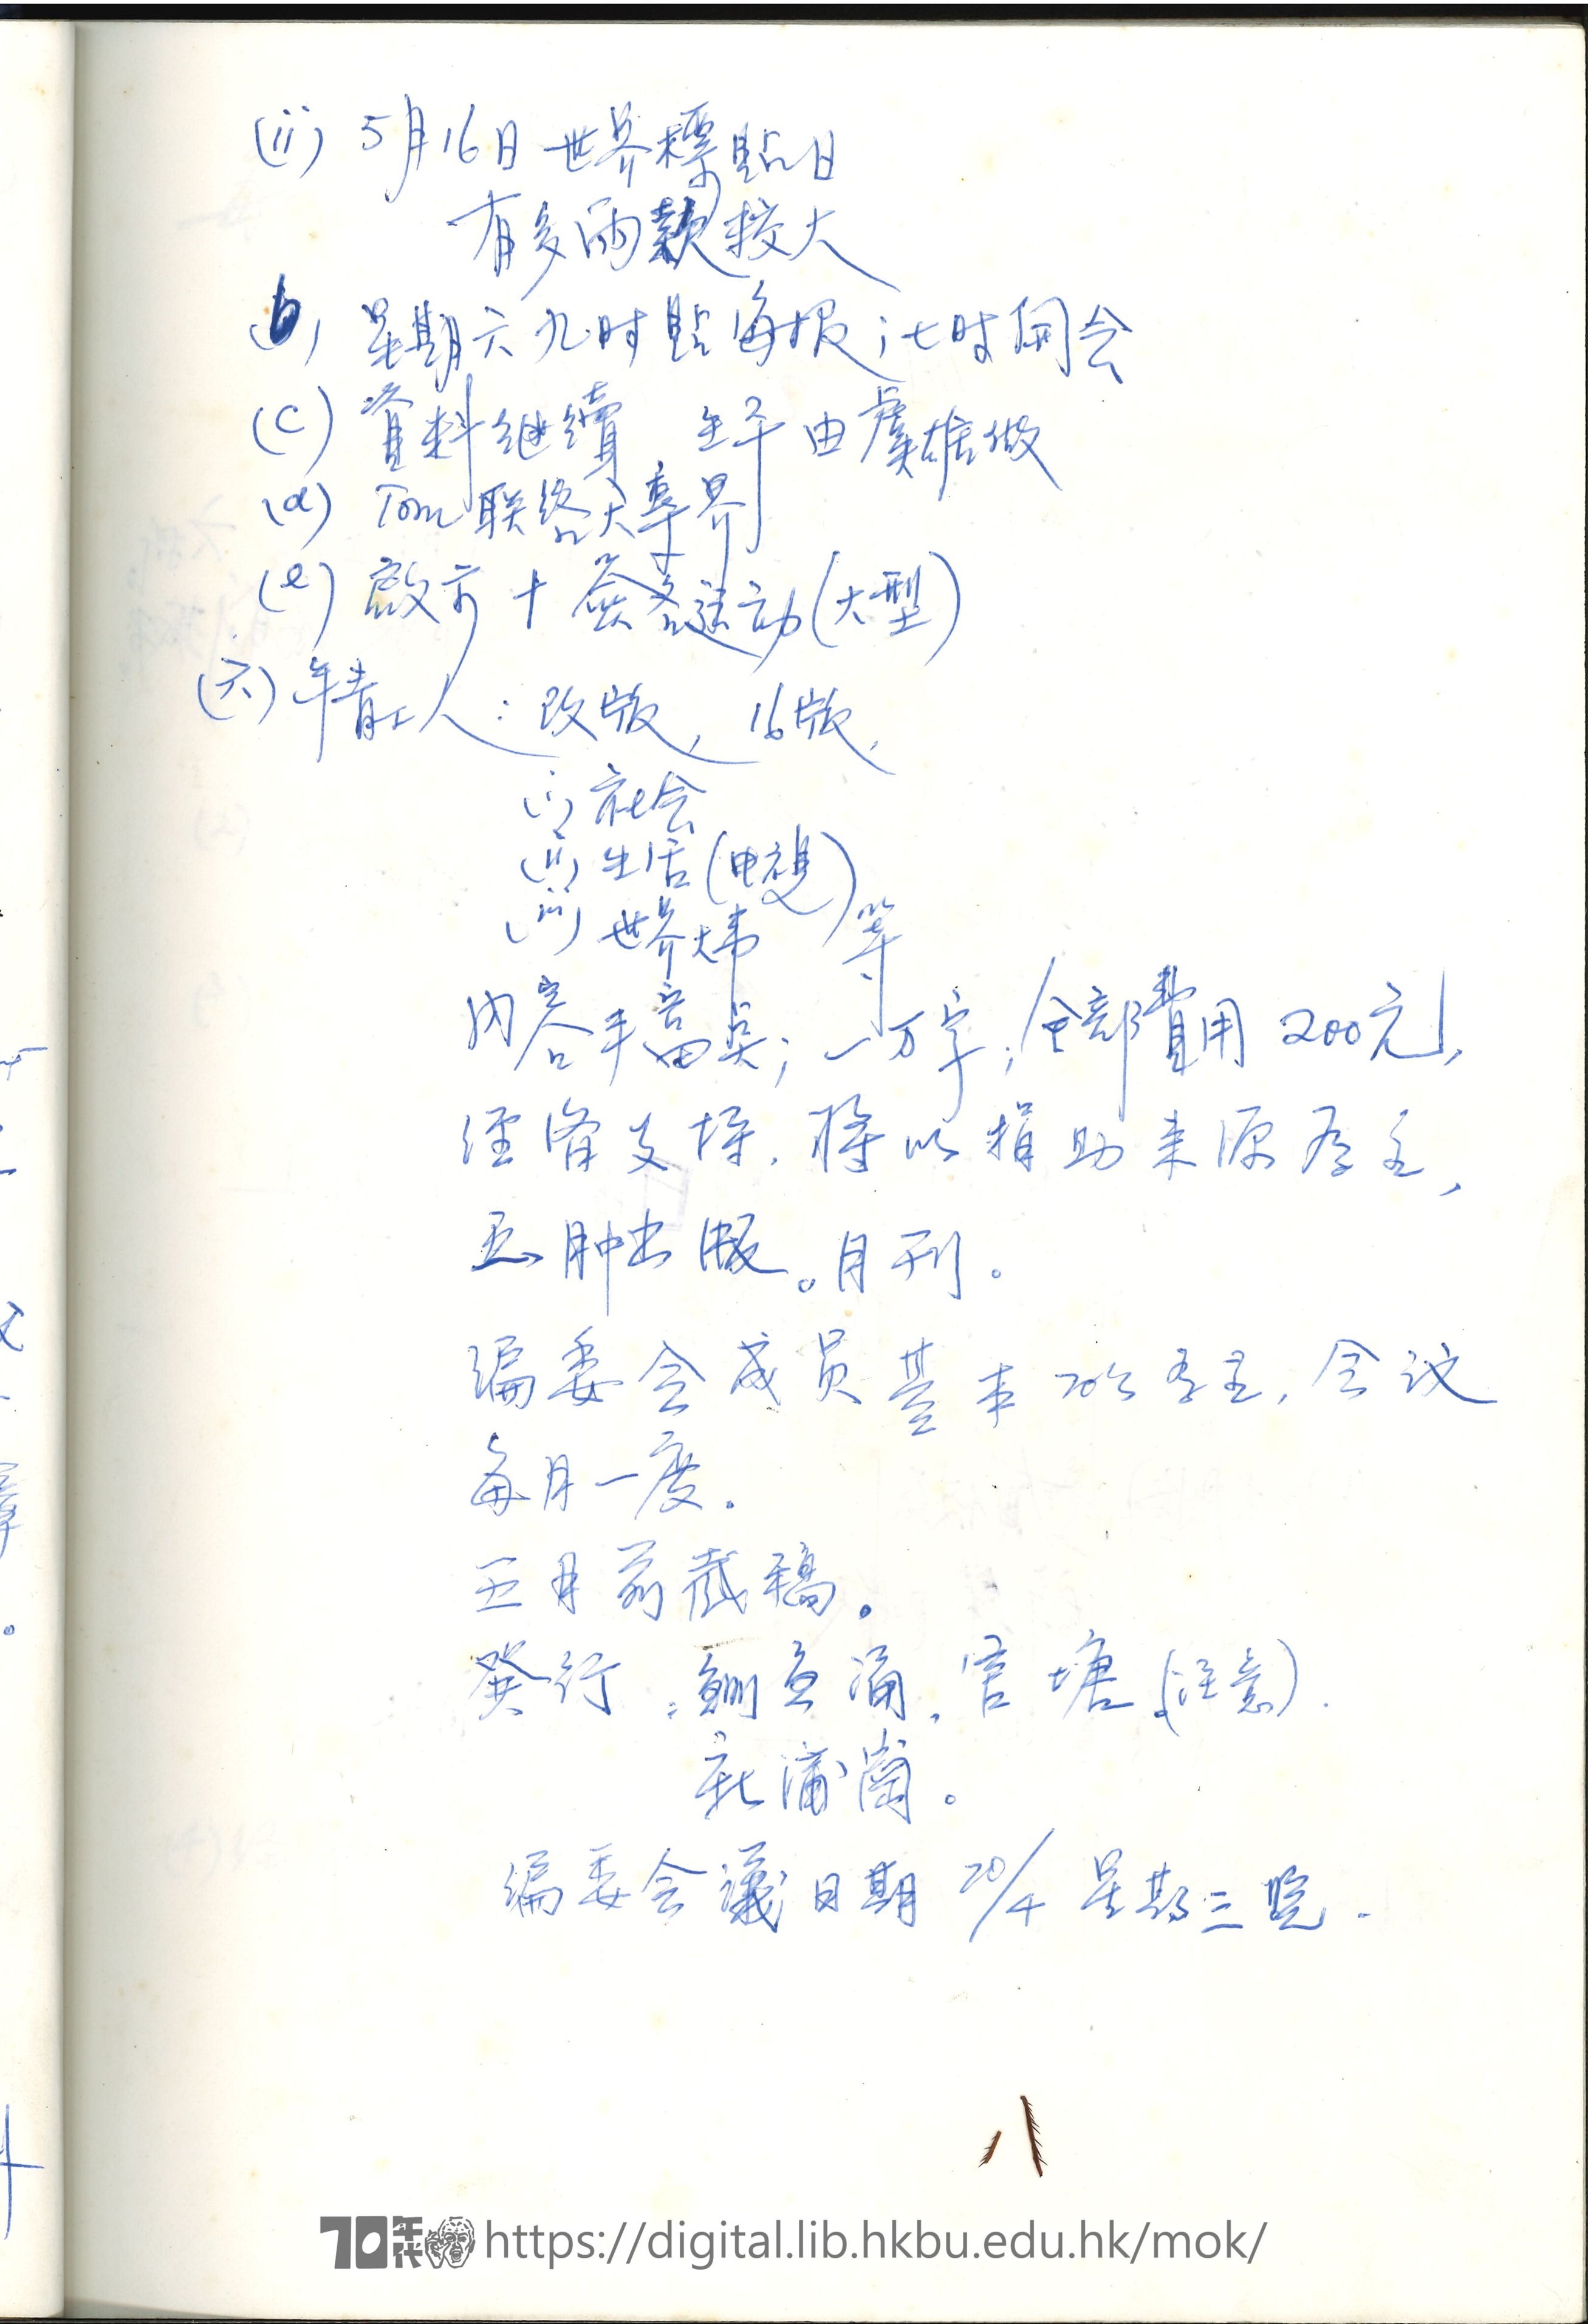 (ii) 5月16日 世界標貼日
有多兩款較大
(b) 星期六九时貼海报;七时開会
(c) 資料继續 由虞雄做
(d) Tom 联络大專界
(e) 啟示+簽名運动(大型)
(六) 年青工人:改版,16版,
(i) 社会
(ii) 生活(电視)
(iii) 世界大事 等
内容丰富矣;一万字;全部費用200元,
經济支持,將以捐助来源為主,
五月中出版。月刊。
編委会成员基本70's為主,会议
每月一度.
五月前截稿。
發行:鰂魚涌,官塘(注意).
新蒲崗。
編委会議日期 20/4 星期三晚.
70年代 https://digital.lib.hkbu.edu.hk/mok/